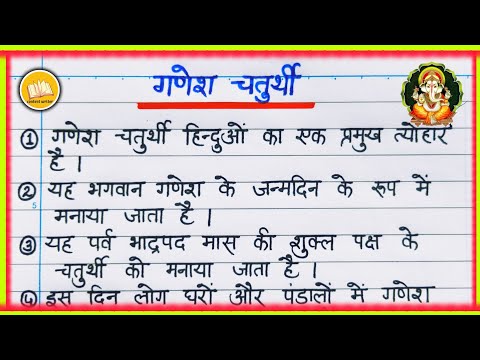 गणेश चतुर्थी
① गणेश चतुर्थी हिन्दुओं का एक प्रमुख त्योहार
है।
② यह भगवान गणेश के जन्मदिन के रूप में
मनाया जाता है।
③ यह पर्व भाद्रपद मास की शुक्ल पक्ष के
चतुर्थी को मनाया जाता है।
④ इस दिन लोग घरों और पंडालों में गणेश